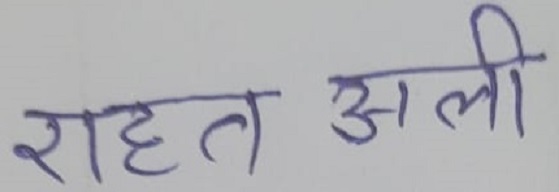 राहत अली